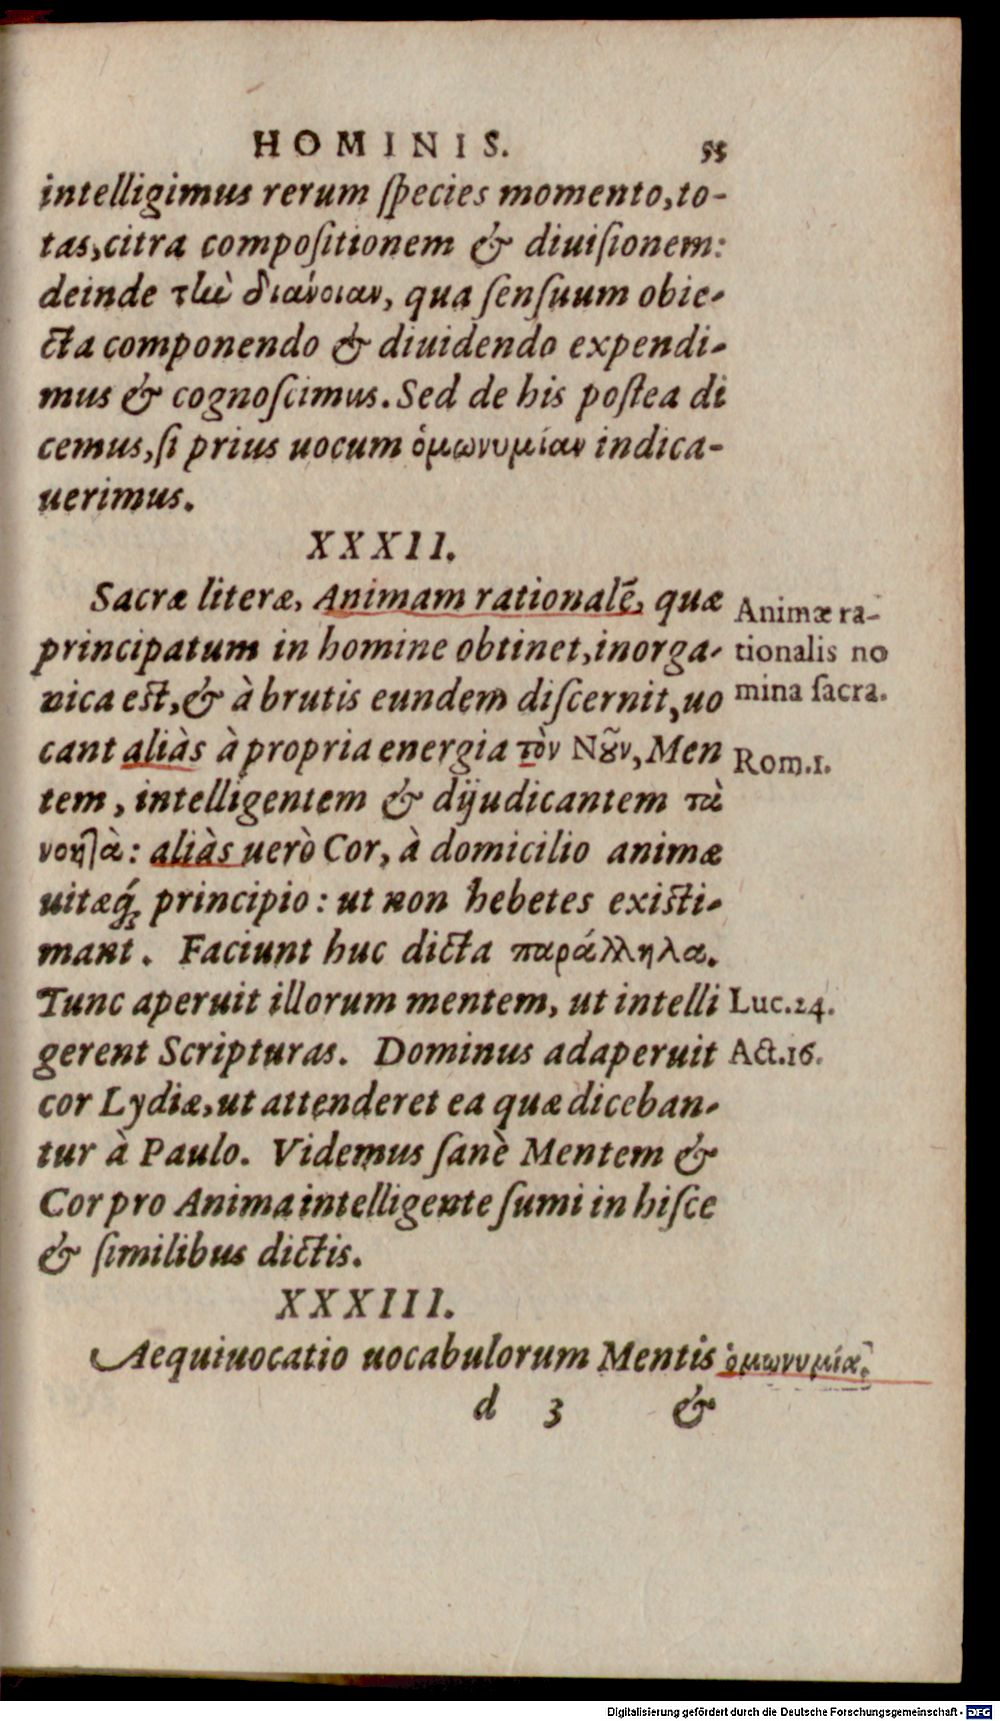 HOMINIS. 55
intelligimus rerum ſpecies momento, to-
tas, citra compoſitionem & diuiſionem:
deinde τὼ διάνοιαν, qua ſenſuum obie-
cta componendo & diuidendo expendi-
mus & cognoſcimus. Sed de his poſtea di
cemus, ſi prius uocum ὁμωνυμίαν indica-
uerimus.
XXXII.
Sacræ literæ, Animam rationalē, quæ
principatum in homine obtinet, inorga-
nica est, & à brutis eundem diſcernit, uo
cant aliàs à propria energia τὸν Νȣ͂ν, Men
tem, intelligentem & dijudicantem τὰ
νοητὰ: aliàs uerò Cor, à domicilio animæ
uitæq́ue principio: ut non hebetes existi-
mant. Faciunt huc dicta παράλληλα.
Tunc aperuit illorum mentem, ut intelli
gerent Scripturas. Dominus adaperuit
cor Lydiæ, ut attenderet ea quæ diceban-
tur à Paulo. Videmus ſanè Mentem &
Cor pro Anima intelligente ſumi in hiſce
& ſimilibus dictis.
XXXIII.
Aequiuocatio uocabulorum Mentis
d 3 &
Animæ ra-
tionalis no
mina ſacra.
Rom.1.
Luc.24.
Act.16.
ὁμωνυμία.
Digitalisierung gefördert durch die Deutsche Forschungsgemeinschaft - DFG